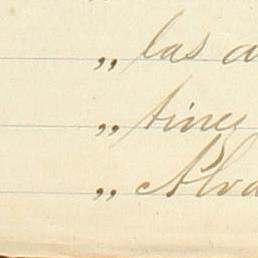 „ las a
„ tines
„ Alva